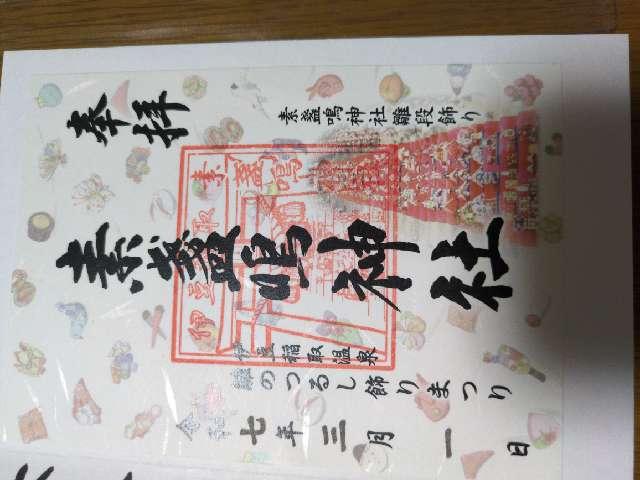 素盞嗚神社雛段飾り
奉拝
素盞嗚神社
伊豆稲取温泉
雛のつるし飾りまつり
令和七年三月一日